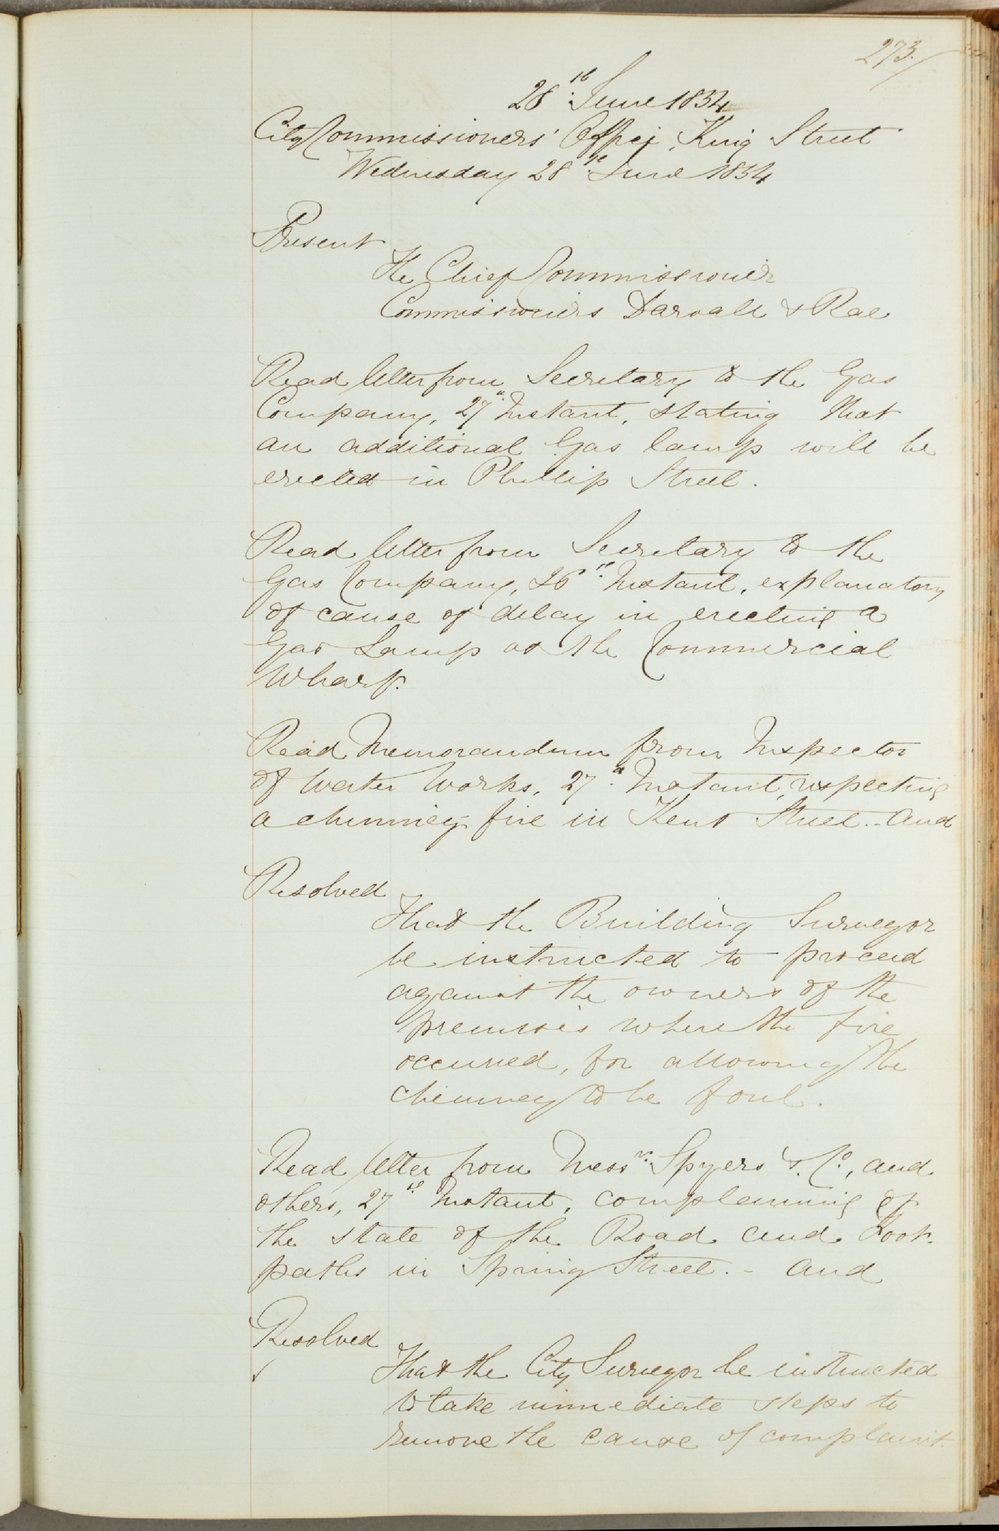 273.
28th June 1854
City Commissioners' Office, King Street
Wednesday 28th June 1854
Present
The Chief Commissioner
Commissioners Darvall & Rae
Read letter from Secretary to the Gas
Company, 27th Instant, stating that
an additional Gas lamp will be
erected in Phillip Street.
Read letter from Secretary to the
Gas Company, 26th Instant, explanatory
of cause of delay in erecting a
Gas Lamp at the Commercial
Wharf.
Read Memorandum from Inspector
of Water Works, 27th Instant, respecting
a chimney fire in Kent Street. - and
Resolved
That the Building Surveyor
be instructed to proceed
against the owners of the
premises where the fire
occurred, for allowing the
chimney to be foul.
Read letter from Messrs. Spyers & Co., and
others, 27th Instant, complaining of
the state of the Road and Foot-
paths in Spring Street. - and
Resolved
That the City Surveyor be instructed
to take immediate steps to
remove the cause of complaint.